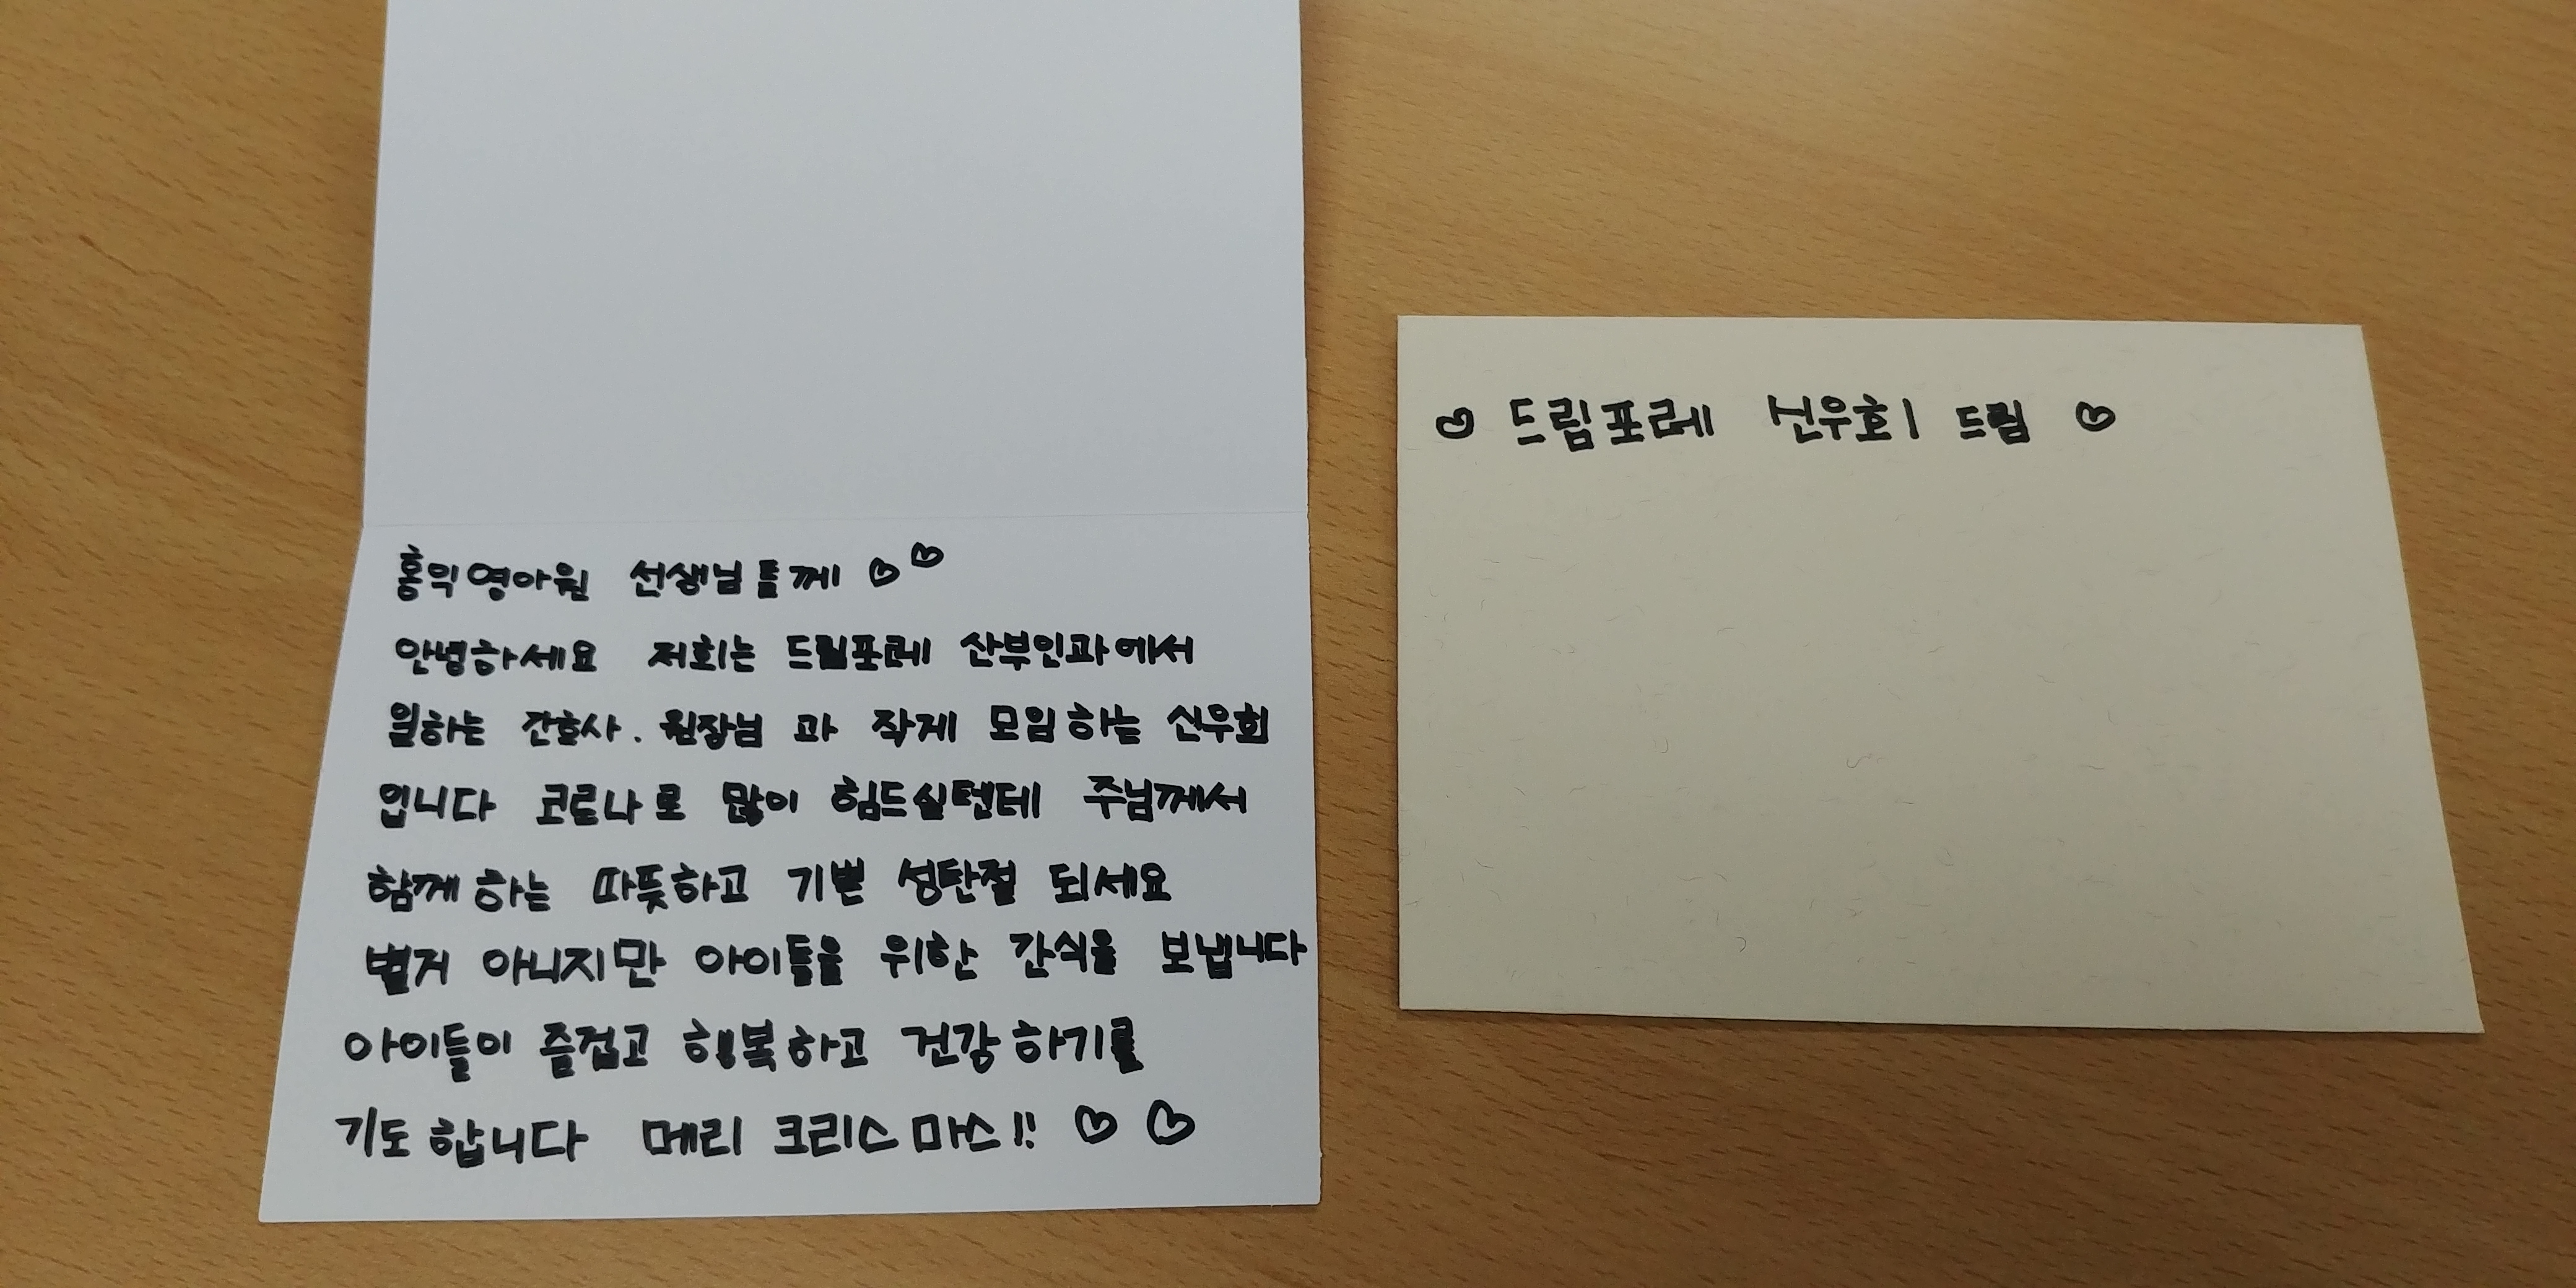 홍익영아원 선생님들께 ♡♡
안녕하세요 저희는 드림포레 산부인과에서
일하는 간호사. 원장님 과 작게 모임하는 신우회
입니다 코로나로 많이 힘드실텐데 주님께서
함께하는 따뜻하고 기쁜 성탄절 되세요
별거 아니지만 아이들을 위한 간식을 보냅니다
아이들이 즐겁고 행복하고 건강하기를
기도합니다 메리 크리스마스!! ♡ ♡
♡ 드림포레 신우회 드림 ♡